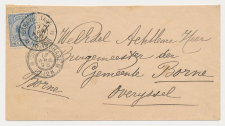 Wel Edel Achtbare Heer
Burgemeester der
Gemeente Borne
Overyssel
Borne